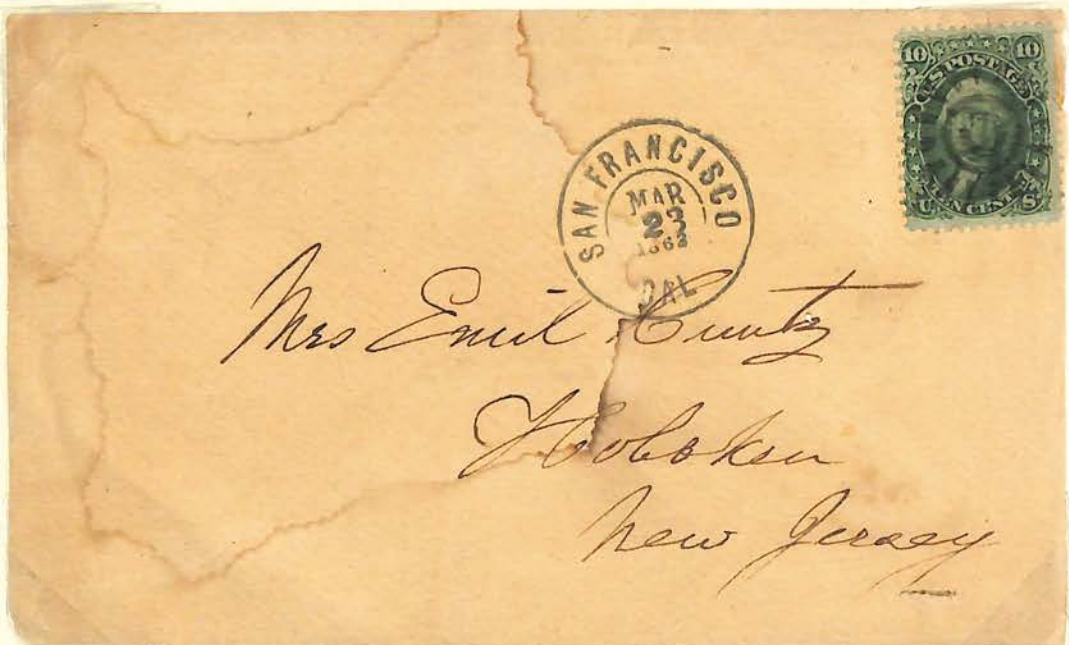 10 10
U.S. POSTAGE
TEN CENTS
U S
SAN FRANCISCO
MAR
CAL
Mrs Emil Cuntz
Hoboken
New Jersey